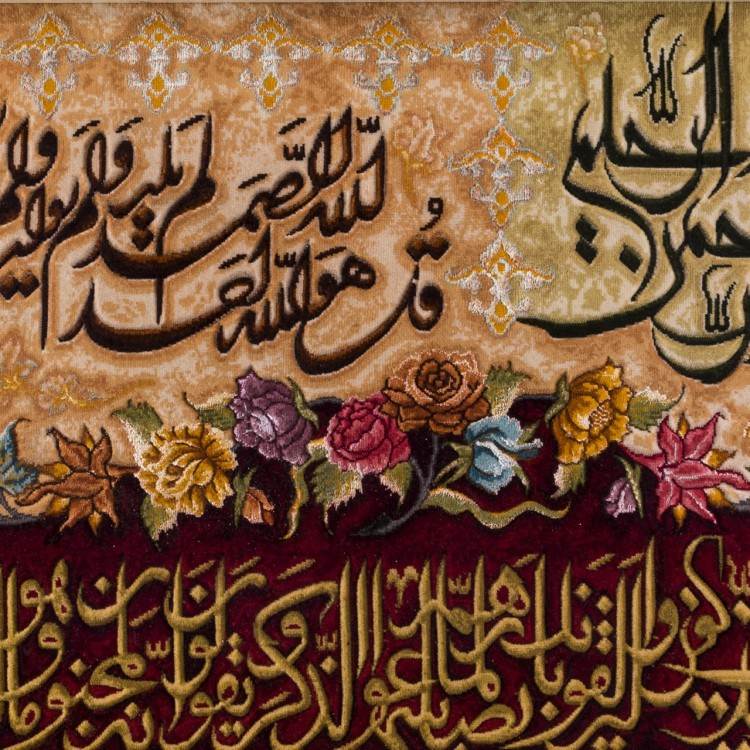 الرحمن الرحيم
قل هو الله احد
الله الصمد لم يلد ولم يولد ولم
كفروا ليزلقونك بابصارهم لما سمعوا الذكر ويقولون انه لمجنون وما هو